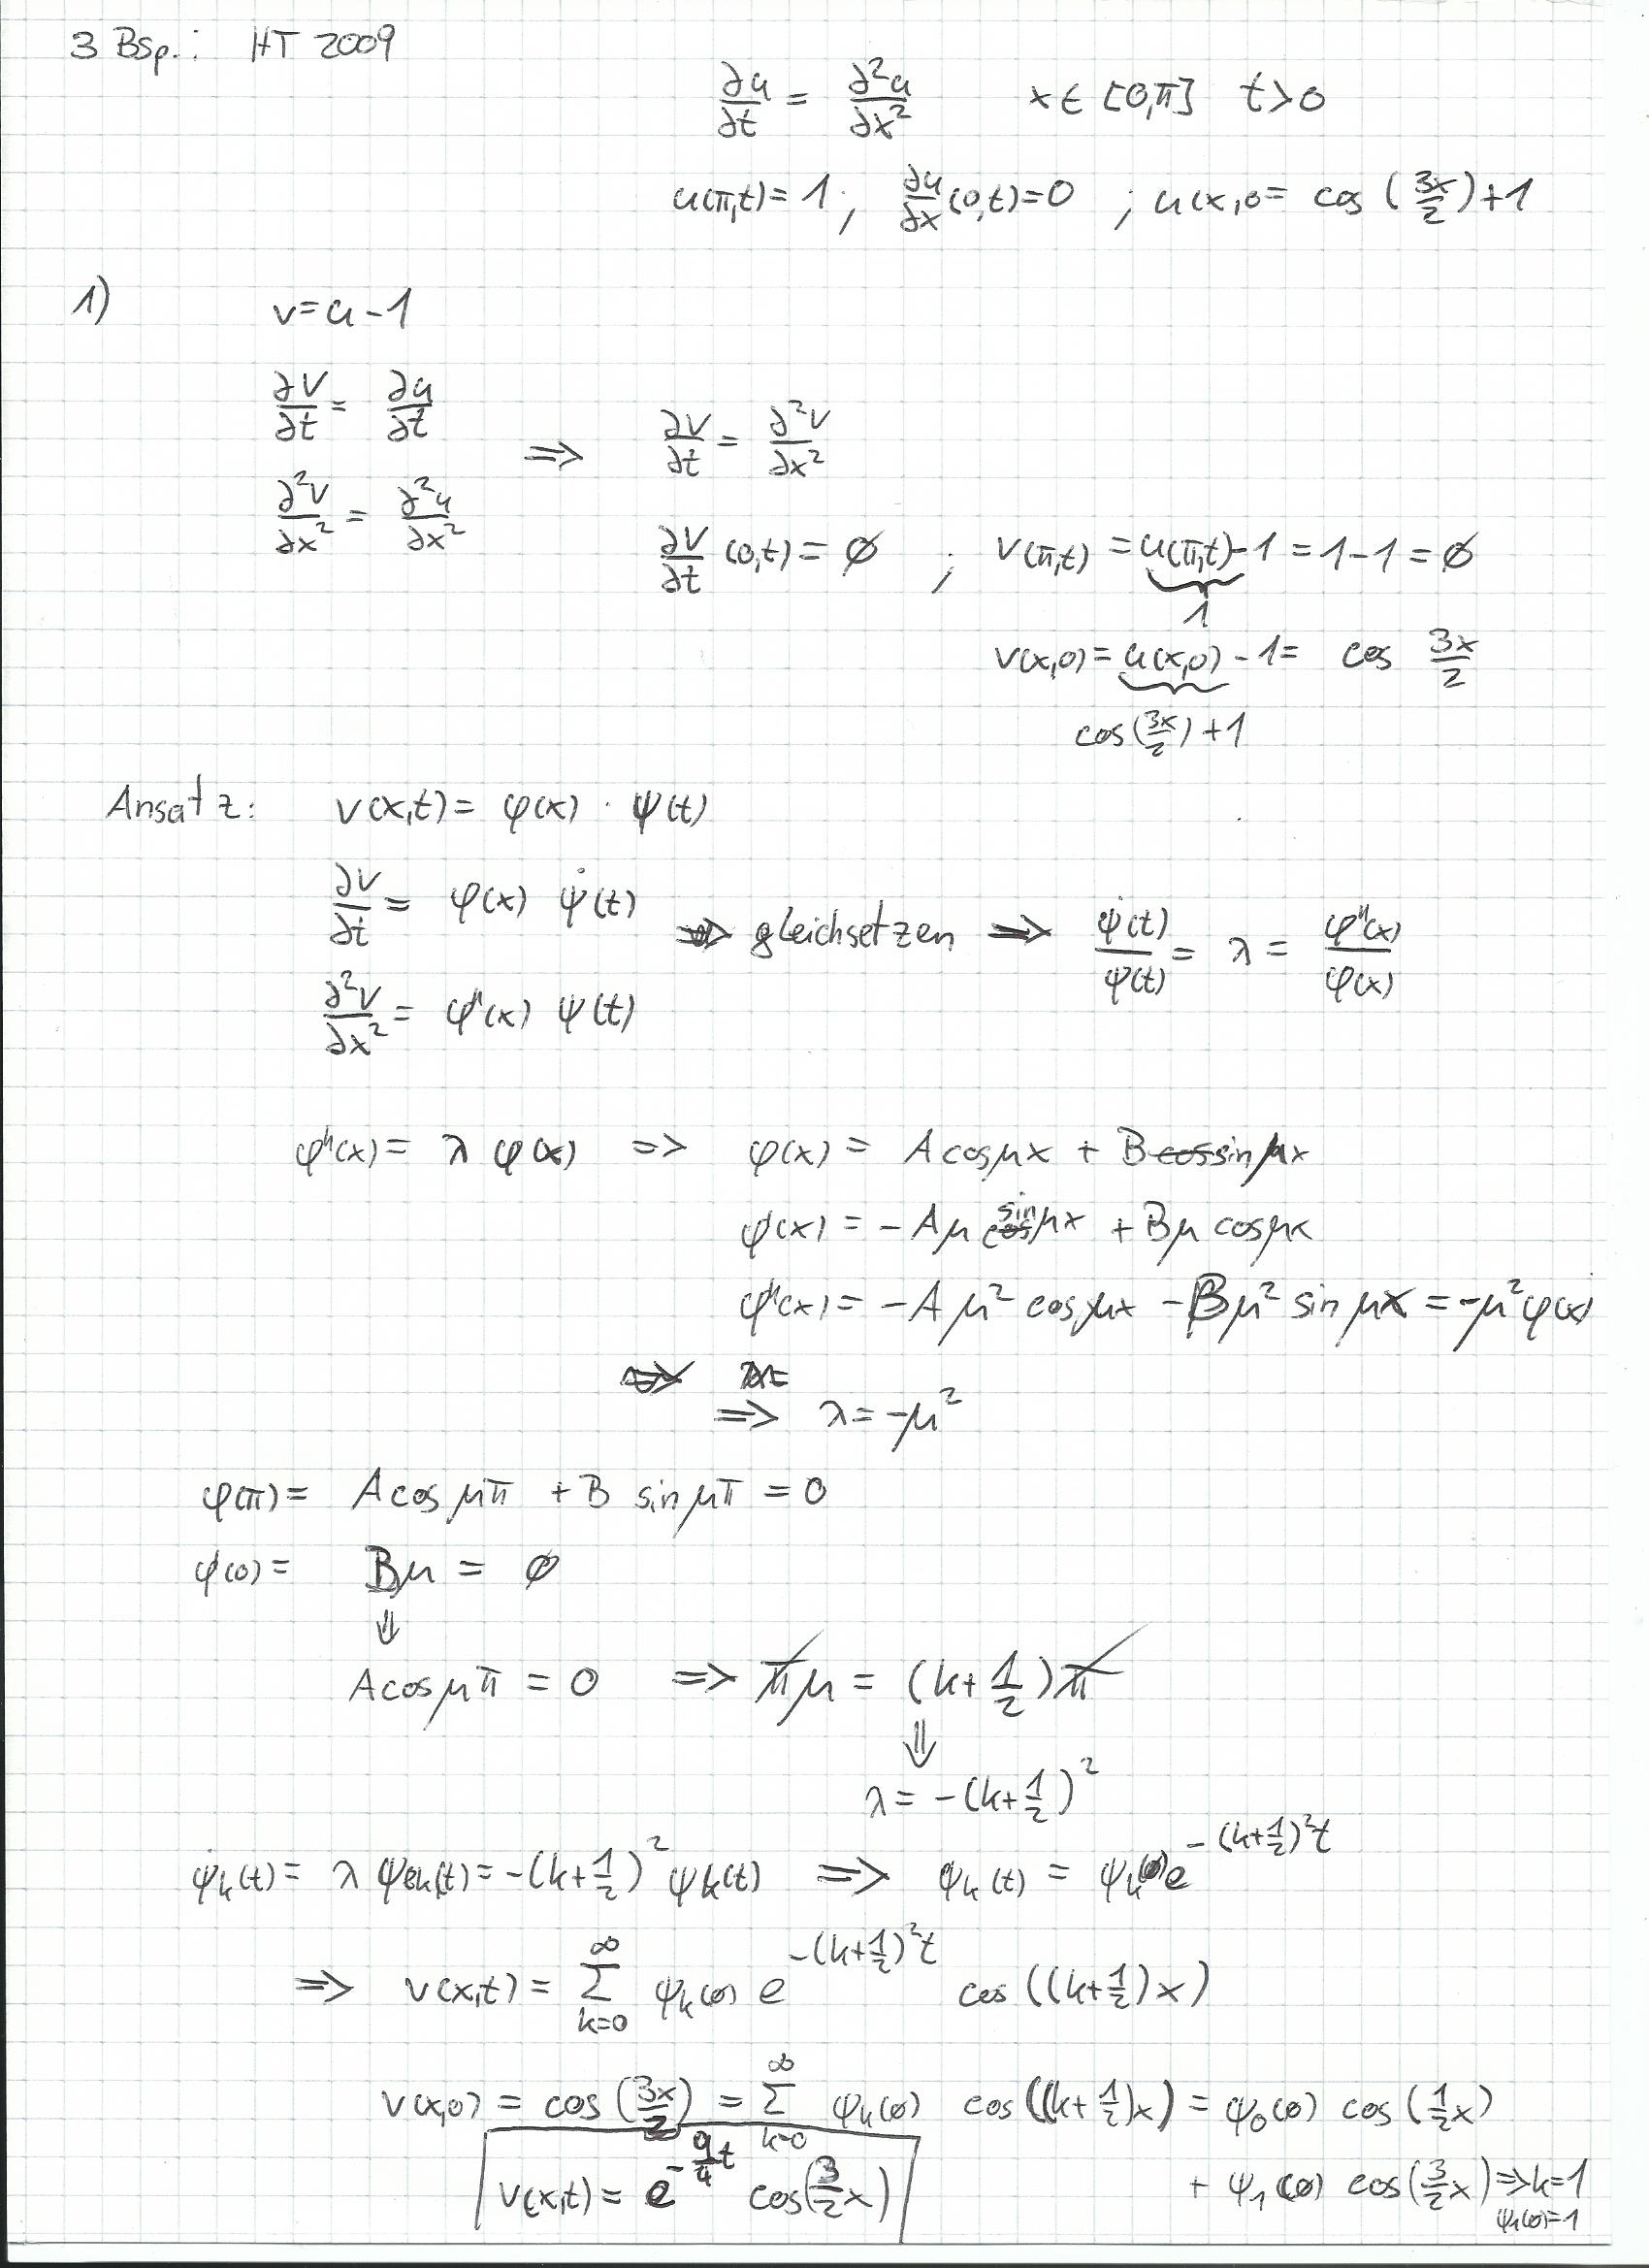 3 Bsp.: HT 2009
∂u/∂t = ∂²u/∂x² x ∈ [0,π] t>0
u(π,t) = 1 ; ∂u/∂x (0,t)=0 ; u(x,0= cos (3x/2)+1
1) v=u-1
∂v/∂t = ∂u/∂t
∂²v/∂x² = ∂²u/∂x² => ∂v/∂t = ∂²v/∂x²
∂v/∂t (0,t) = ∅ ; v(π,t) = u(π,t)-1 = 1-1 = ∅
1
v(x,0) = u(x,0) - 1 = cos 3x/2
cos(3x/2)+1
Ansatz: v(x,t) = φ(x) · ψ(t)
∂v/∂t = φ(x) ψ̇(t)
=> gleichsetzen => ψ̇(t)/ψ(t) = λ = φ''(x)/φ(x)
∂²v/∂x² = φ''(x) ψ(t)
φ''(x) = λ φ(x) => φ(x) = A cosμx + B sinμx
φ'(x) = -Aμ sinμx + Bμ cosμx
φ''(x) = -Aμ² cosμx - Bμ² sinμx = -μ²φ(x)
=> λ = -μ²
φ(π) = A cos μπ + B sinμπ = 0
φ'(0) = Bμ = ∅
⇓
A cosμπ = 0 => πμ = (k+1/2)π
⇓
λ = -(k+1/2)²
ψ̇k(t) = λ ψk(t) = -(k+1/2)² ψk(t) => ψk(t) = ψk(0)e^-(k+1/2)²t
=> v(x,t) = ∑ k=0 ∞ ψk(0) e^-(k+1/2)²t cos((k+1/2)x)
v(x,0) = cos(3x/2) = ∑ k=0 ∞ ψk(0) cos((k+1/2)x) = ψ0(0) cos(1/2x)
+ ψ1(0) cos(3/2x) => k=1
ψ1(0)=1
v(x,t) = e^-9/4t cos(3/2x)